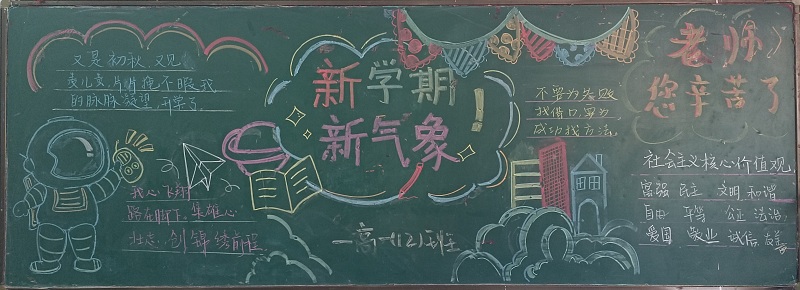 又是初秋,又见
的脉脉凝望,开学了.
新学期
新气象!
不要为失败
找借口,要为
成功找方法.
老师
您辛苦了
我心飞翔
路在脚下,集雄心
壮志,创锦绣前程
一高一(2)班
社会主义核心价值观
富强 民主 文明 和谐
自由 平等 公正 法治
爱国 敬业 诚信 友善